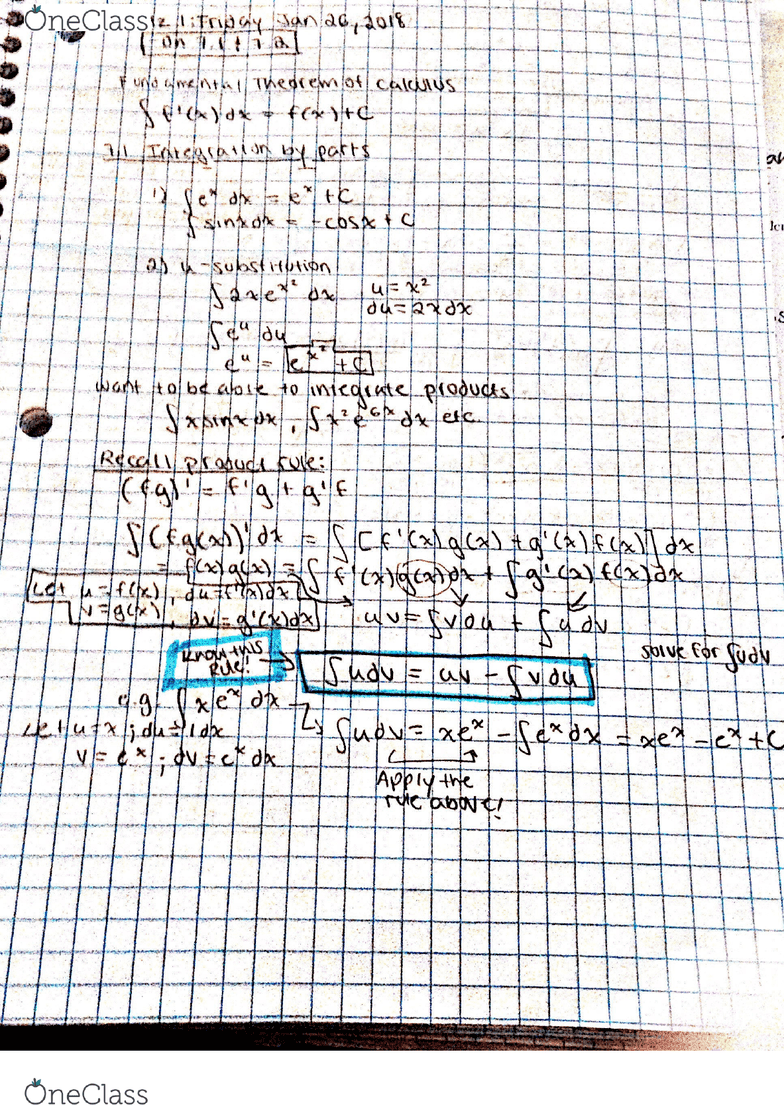 OneClass
1: Friday Jan 26, 2018
on 7.1 + 7.2
Fundamental Theorem of calculus
∫ f'(x) dx = f(x) + C
7.1 Integration by parts
1) ∫ e^x dx = e^x + C
∫ sinx dx = -cosx + C
2) u-substitution
∫ 2x e^x² dx   u = x²
du = 2x dx
∫ e^u du
e^u = e^x² + C
want to be able to integrate products
∫ x sinx dx , ∫ x² e^6x dx etc.
Recall product rule:
(fg)' = f'g + g'f
∫ (fg(x))' dx = ∫ [f'(x) g(x) + g'(x) f(x)] dx
= f(x) g(x) = ∫ f'(x) g(x) dx + ∫ g'(x) f(x) dx
Let u = f(x) , du = f'(x) dx
v = g(x) , dv = g'(x) dx   uv = ∫ v du + ∫ u dv
solve for ∫ u dv
Know this Rule! → ∫ u dv = uv - ∫ v du
e.g. ∫ x e^x dx
Let u = x ; du = 1 dx   ∫ u dv = xe^x - ∫ e^x dx = xe^x - e^x + C
v = e^x ; dv = e^x dx
Apply the
rule above!
OneClass